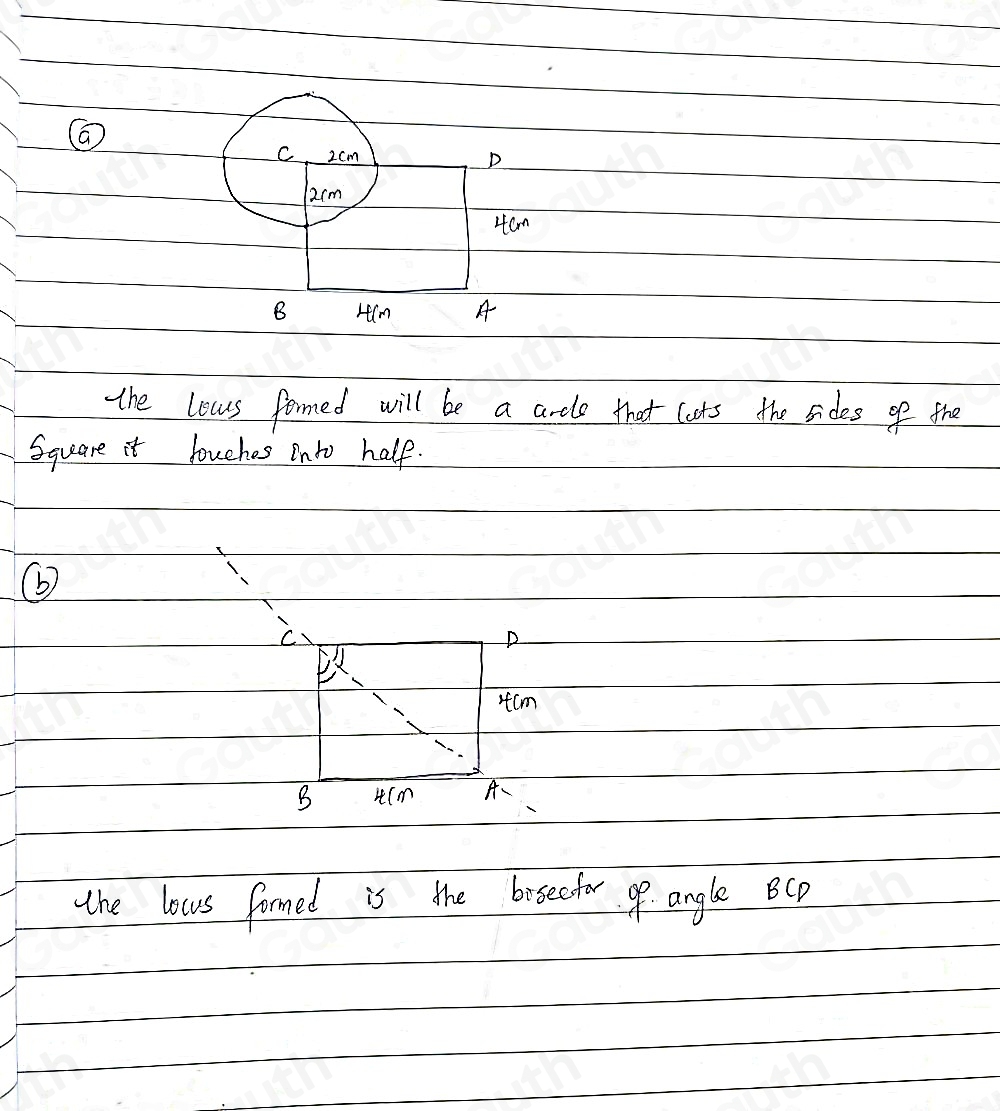 (a)
C 2cm D
2cm
4cm
B 4cm A
the locus formed will be a circle that cuts the sides of the
Square it touches into half.
(b)
C D
4cm
B 4cm A
the locus formed is the bisector of angle BCD